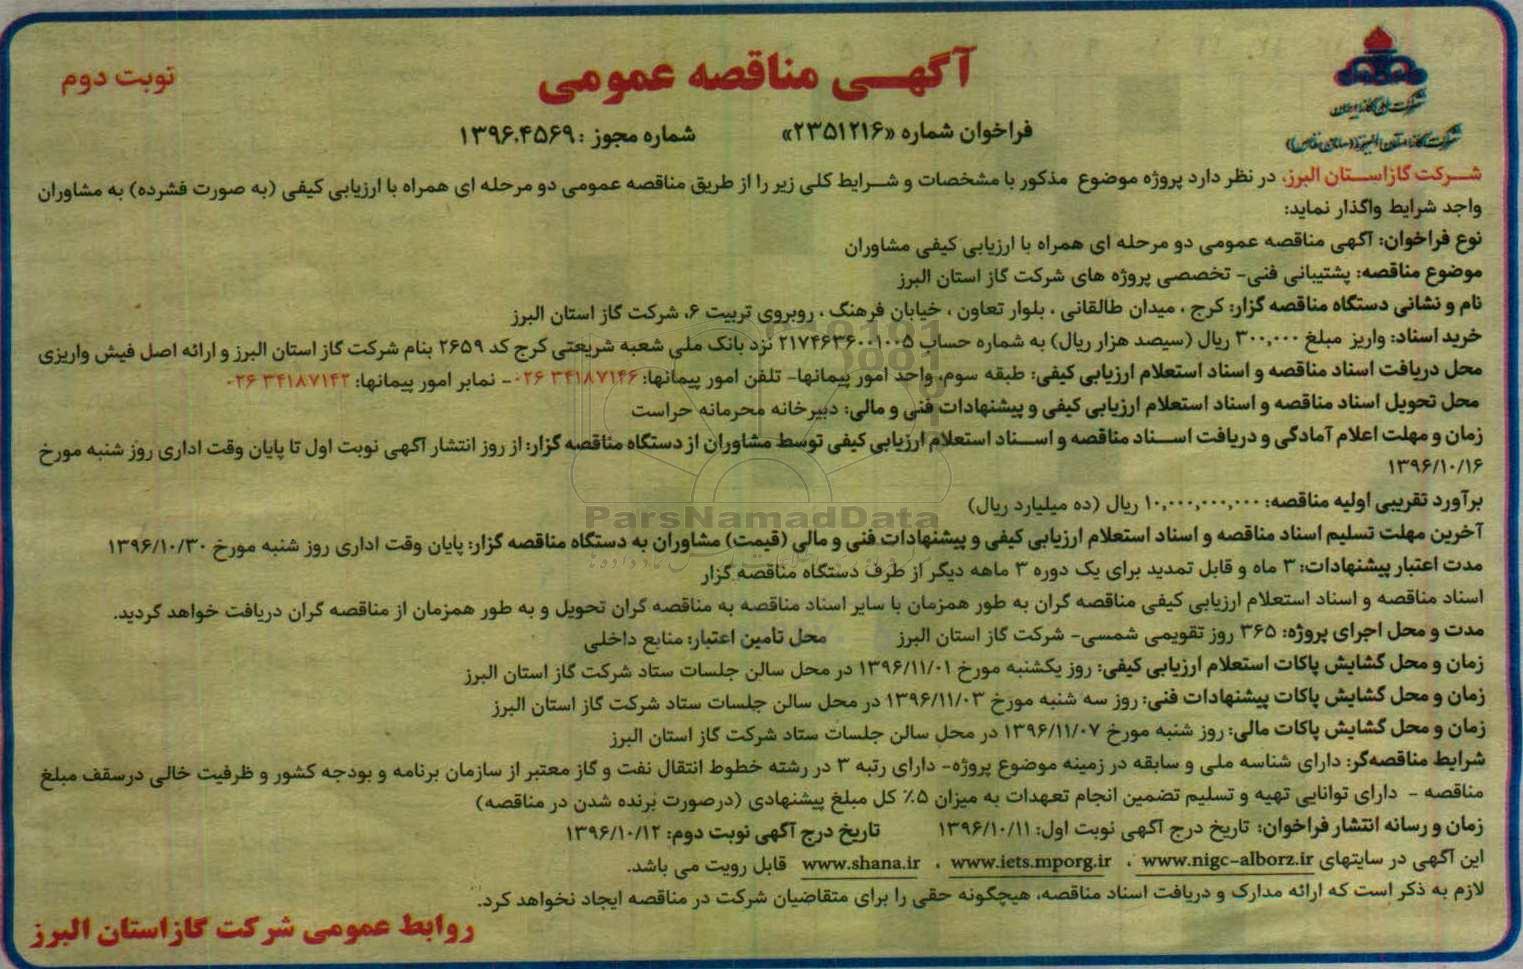 شرکت ملی گاز ایران
شرکت گاز استان البرز (سهامی خاص)
آگهی مناقصه عمومی
نوبت دوم
فراخوان شماره «۲۳۵۱۲۱۶»
شماره مجوز : ۱۳۹۶.۴۵۶۹
شرکت گاز استان البرز، در نظر دارد پروژه موضوع مذکور با مشخصات و شرایط کلی زیر را از طریق مناقصه عمومی دو مرحله ای همراه با ارزیابی کیفی (به صورت فشرده) به مشاوران
واجد شرایط واگذار نماید:
نوع فراخوان: آگهی مناقصه عمومی دو مرحله ای همراه با ارزیابی کیفی مشاوران
موضوع مناقصه: پشتیبانی فنی- تخصصی پروژه های شرکت گاز استان البرز
نام و نشانی دستگاه مناقصه گزار: کرج ، میدان طالقانی ، بلوار تعاون ، خیابان فرهنگ ، روبروی تربیت ۶، شرکت گاز استان البرز
خرید اسناد: واریز مبلغ ۳۰۰,۰۰۰ ریال (سیصد هزار ریال) به شماره حساب ۲۱۷۴۶۳۶۰۰۱۰۰۵ نزد بانک ملی شعبه شریعتی کرج کد ۲۶۵۹ بنام شرکت گاز استان البرز و ارائه اصل فیش واریزی
محل دریافت اسناد مناقصه و اسناد استعلام ارزیابی کیفی: طبقه سوم، واحد امور پیمانها- تلفن امور پیمانها: ۳۴۱۸۷۱۴۶ ۰۲۶- نمابر امور پیمانها: ۳۴۱۸۷۱۴۲ ۰۲۶
محل تحویل اسناد مناقصه و اسناد استعلام ارزیابی کیفی و پیشنهادات فنی و مالی: دبیرخانه محرمانه حراست
زمان و مهلت اعلام آمادگی و دریافت اسناد مناقصه و اسناد استعلام ارزیابی کیفی توسط مشاوران از دستگاه مناقصه گزار: از روز انتشار آگهی نوبت اول تا پایان وقت اداری روز شنبه مورخ
۱۳۹۶/۱۰/۱۶
برآورد تقریبی اولیه مناقصه: ۱۰,۰۰۰,۰۰۰,۰۰۰ ریال (ده میلیارد ریال)
آخرین مهلت تسلیم اسناد مناقصه و اسناد استعلام ارزیابی کیفی و پیشنهادات فنی و مالی (قیمت) مشاوران به دستگاه مناقصه گزار: پایان وقت اداری روز شنبه مورخ ۱۳۹۶/۱۰/۳۰
مدت اعتبار پیشنهادات: ۳ ماه و قابل تمدید برای یک دوره ۳ ماهه دیگر از طرف دستگاه مناقصه گزار
اسناد مناقصه و اسناد استعلام ارزیابی کیفی مناقصه گران به طور همزمان با سایر اسناد مناقصه به مناقصه گران تحویل و به طور همزمان از مناقصه گران دریافت خواهد گردید.
مدت و محل اجرای پروژه: ۳۶۵ روز تقویمی شمسی- شرکت گاز استان البرز محل تامین اعتبار: منابع داخلی
زمان و محل گشایش پاکات استعلام ارزیابی کیفی: روز یکشنبه مورخ ۱۳۹۶/۱۱/۰۱ در محل سالن جلسات ستاد شرکت گاز استان البرز
زمان و محل گشایش پاکات پیشنهادات فنی: روز سه شنبه مورخ ۱۳۹۶/۱۱/۰۳ در محل سالن جلسات ستاد شرکت گاز استان البرز
زمان و محل گشایش پاکات مالی: روز شنبه مورخ ۱۳۹۶/۱۱/۰۷ در محل سالن جلسات ستاد شرکت گاز استان البرز
شرایط مناقصه‌گر: دارای شناسه ملی و سابقه در زمینه موضوع پروژه- دارای رتبه ۳ در رشته خطوط انتقال نفت و گاز معتبر از سازمان برنامه و بودجه کشور و ظرفیت خالی درسقف مبلغ
مناقصه - دارای توانایی تهیه و تسلیم تضمین انجام تعهدات به میزان ۵٪ کل مبلغ پیشنهادی (درصورت برنده شدن در مناقصه)
زمان و رسانه انتشار فراخوان: تاریخ درج آگهی نوبت اول: ۱۳۹۶/۱۰/۱۱ تاریخ درج آگهی نوبت دوم: ۱۳۹۶/۱۰/۱۲
این آگهی در سایتهای www.nigc-alborz.ir ، www.iets.mporg.ir ، www.shana.ir قابل رویت می باشد.
لازم به ذکر است که ارائه مدارک و دریافت اسناد مناقصه، هیچگونه حقی را برای متقاضیان شرکت در مناقصه ایجاد نخواهد کرد.
روابط عمومی شرکت گاز استان البرز
ParsNamadData